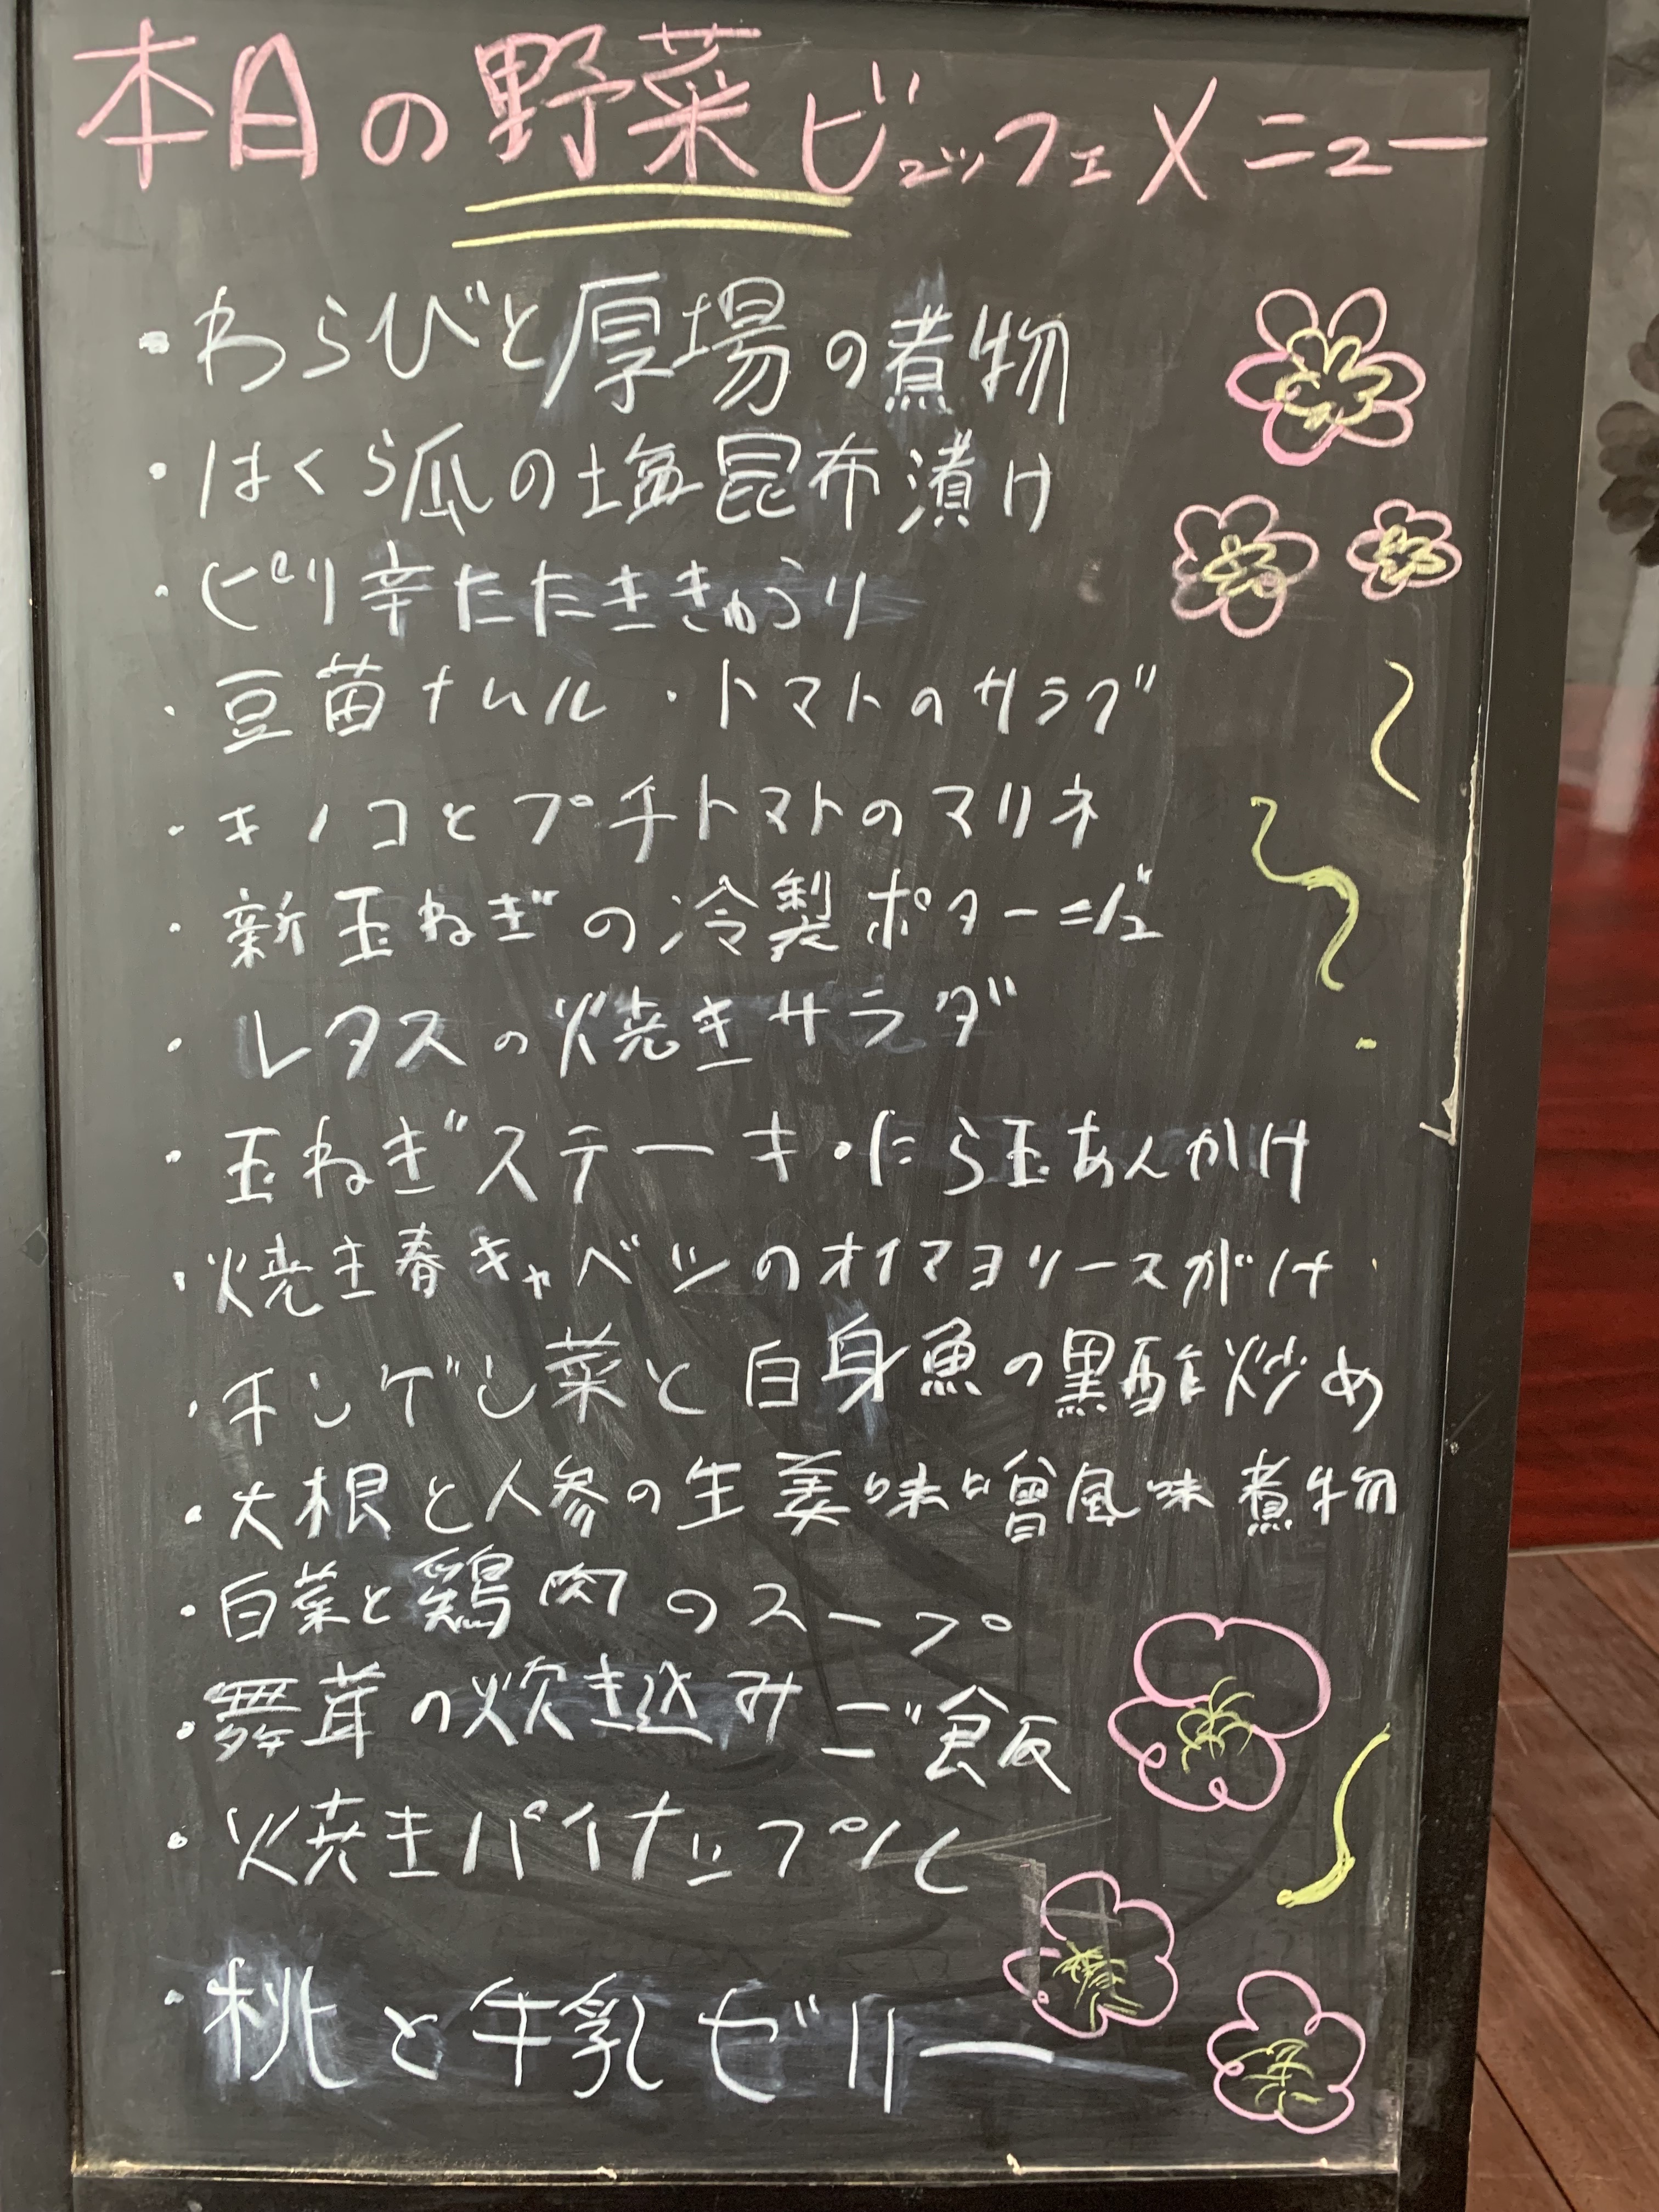 本日の野菜ビュッフェメニュー
・わらびと厚場の煮物
・はくら瓜の塩昆布漬け
・ピリ辛たたききゅうり
・豆苗ナムル・トマトのサラダ
・キノコとプチトマトのマリネ
・新玉ねぎの冷製ポタージュ
・レタスの焼きサラダ
・玉ねぎステーキ・たら玉あんかけ
・焼き春キャベツのオイマヨソースがけ
・チンゲン菜と白身魚の黒酢炒め
・大根と人参の生姜味噌風味煮物
・白菜と鶏肉のスープ
・舞茸の炊き込みご飯
・焼きパイナップル
・桃と牛乳ゼリー